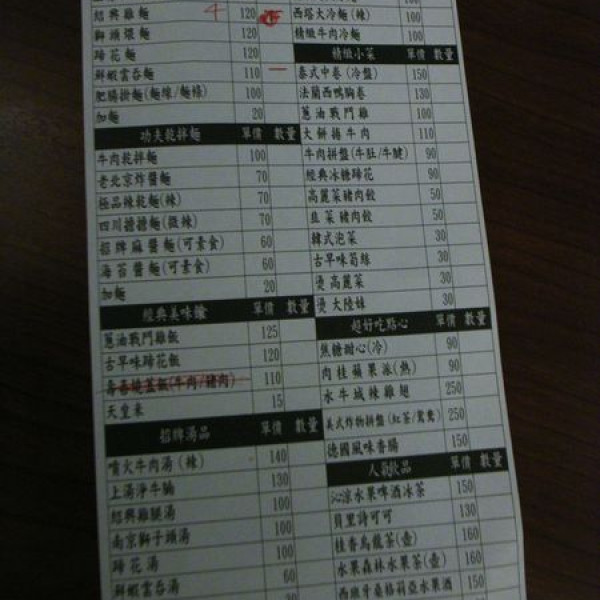 紹興雞麵 4 120
獅頭煨麵 120
蹄花麵 120
鮮蝦雲吞麵 110
肥腸掛麵(麵線/麵條) 100
加麵 20
功夫乾拌麵 單價 數量
牛肉乾拌麵 100
老北京炸醬麵 70
極品辣乾麵(辣) 70
四川擔擔麵(微辣) 70
招牌麻醬麵(可素食) 60
海苔醬麵(可素食) 60
加麵 20
經典美味燴 單價 數量
蔥油戰鬥雞飯 125
古早味蹄花飯 120
壽喜燒蓋飯(牛肉/豬肉) 110
天皇米 15
招牌湯品 單價 數量
噴火牛肉湯(辣) 140
上湯淨牛腩 130
紹興雞腿湯 100
南京獅子頭湯 100
蹄花湯 100
鮮蝦雲吞湯 60
30
西塔大冷麵(辣) 100
精緻牛肉冷麵 100
精緻小菜 單價 數量
泰式中卷(冷盤) 150
法蘭西鴨胸卷 130
蔥油戰鬥雞 100
大餅捲牛肉 110
牛肉拼盤(牛肚/牛腱) 90
經典冰糖蹄花 90
高麗菜豬肉餃 50
韭菜豬肉餃 50
韓式泡菜 30
古早味筍絲 30
燙高麗菜 30
燙大陸妹 30
超好吃點心 單價 數量
焦糖甜心(冷) 90
肉桂蘋果派(熱) 90
水牛城辣雞翅 250
美式炸物拼盤(紅茶/鴛鴦) 250
德國風味香腸 150
人氣飲品 單價 數量
沁涼水果啤酒冰茶 150
貝里詩可可 130
桂香烏龍茶(壺) 160
水果森林水果茶(壺) 160
西班牙桑格莉亞水果酒 150